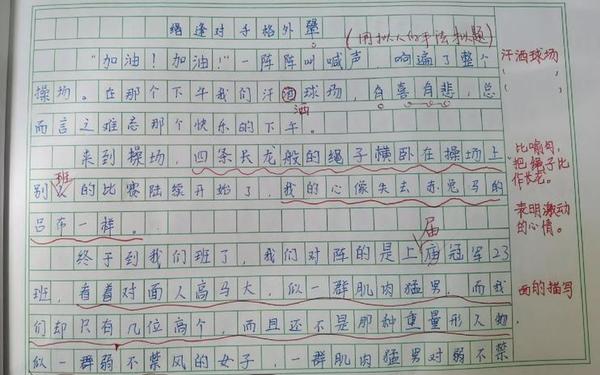 绳逢对手格外晕
(用拟人的手法拟题)
“加油！加油！”一阵阵叫喊声 响遍了整个
操场。在那个下午我们汗洒球场，有喜有悲，总
洒
而言之难忘那个快乐的下午。
来到操场，四条长龙般的绳子横卧在操场上
班
别的比赛陆续开始了，我的心像失去赤兔马的
吕布一样。
届
终于到我们班了，我们对阵的是上庙冠军23
班，看着对面人高马大，似一群肌肉猛男，而我
们却只有几位高个，而且还不是那种重量形人物，
似一群弱不禁风的女子，一群肌肉猛男对弱不禁
汗洒球场
( )
( )
比喻句，
把绳子比
作长龙。
表明激动
的心情。
面的描写